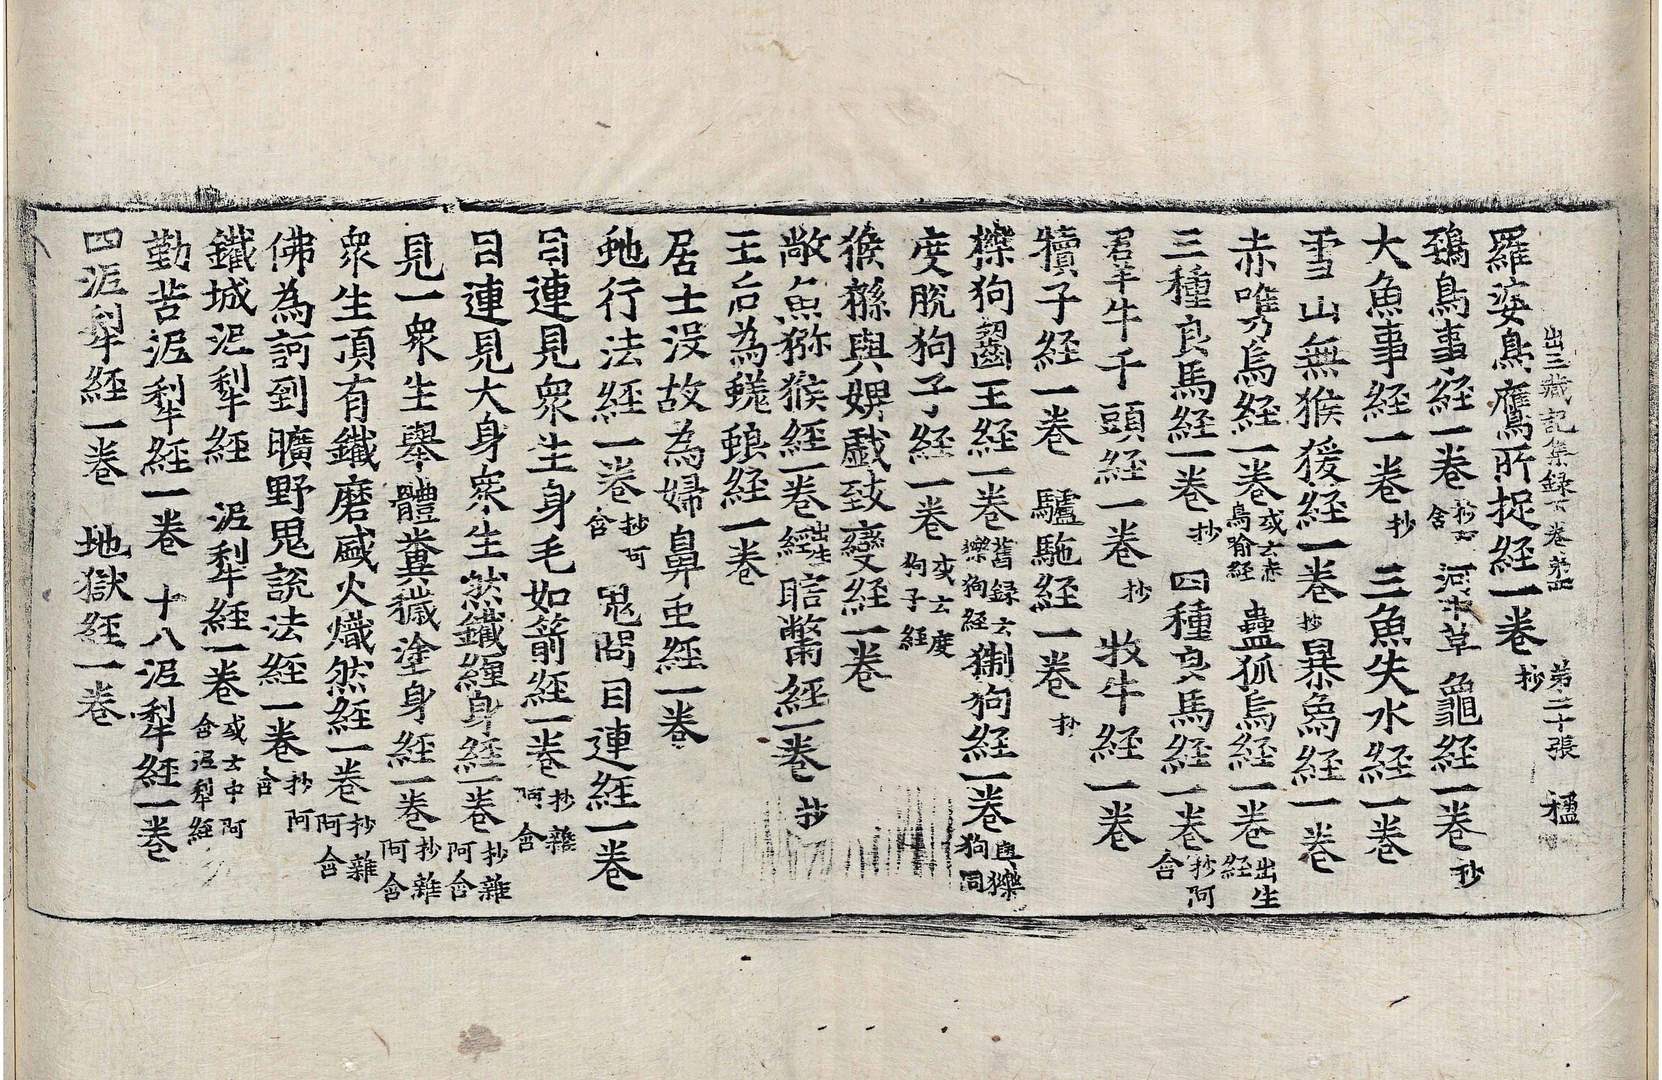 出三藏記集録下卷第四 第二十張 楹
羅婆鳥鷹所捉經一卷抄
鵄鳥事經一卷抄阿含 河中草龜經一卷抄
大魚事經一卷抄 三魚失水經一卷
雪山無猴猨經一卷抄 暴象經一卷
赤嘴烏經一卷或云赤烏喻經 蠱狐烏經一卷出生經
三種良馬經一卷抄 四種良馬經一卷抄阿含
群牛千頭經一卷抄 牧牛經一卷
犢子經一卷 驢駞經一卷抄
㹎狗齧王經一卷舊録云㹎狗經 猘狗經一卷與㹎狗同
度脫狗子經一卷或云度狗子經
猴猻與婢戲致變經一卷
鼈魚獼猴經一卷出生經 瞎鼈經一卷抄
王后為蜣蜋經一卷
居士没故為婦鼻虫經一卷
虵行法經一卷抄阿含 鬼問目連經一卷
目連見衆生身毛如箭經一卷抄雜阿含
目連見大身衆生然鐵纏身經一卷抄雜阿含
見一衆生舉體糞穢塗身經一卷抄雜阿含
衆生頂有鐵磨盛火熾然經一卷抄雜阿含
佛為訶到曠野鬼說法經一卷抄阿含
鐵城泥犁經 泥犁經一卷或云中阿含泥犁經
勤苦泥犁經一卷 十八泥犁經一卷
四泥犁經一卷 地獄經一卷